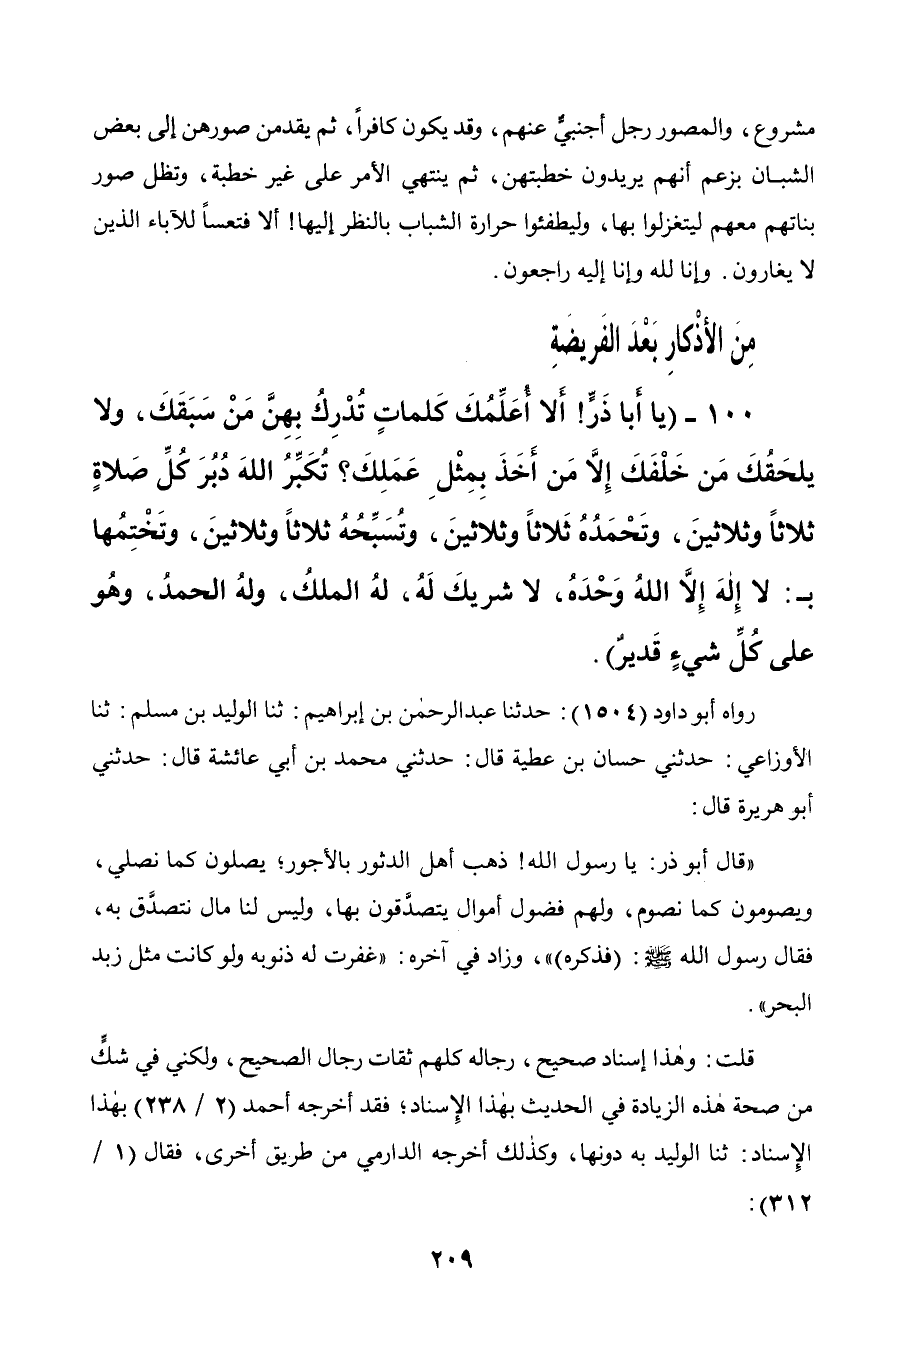 مشروع، والمصور رجل أجنبيٌّ عنهم، وقد يكون كافراً، ثم يقدمن صورهن إلى بعض
الشبـان بزعم أنهم يريدون خطبتهن، ثم ينتهي الأمر على غير خطبة، وتظل صور
بناتهم معهم ليتغزلوا بها، وليطفئوا حرارة الشباب بالنظر إليها! ألا فتعساً للآباء الذين
لا يغارون. وإنا لله وإنا إليه راجعون.
مِنَ الأذْكارِ بَعْدَ الفَريضَةِ
١٠٠ ـ (يا أَبا ذَرٍّ! أَلا أُعَلِّمُكَ كَلماتٍ تُدْرِكُ بِهِنَّ مَنْ سَبَقَكَ، ولا
يلحَقُكَ مَن خَلْفَكَ إِلاَّ مَن أَخَذَ بِمِثْلِ عَمَلِكَ؟ تُكَبِّرُ اللهَ دُبُرَ كُلِّ صَلاةٍ
ثلاثاً وثلاثينَ، وتَحْمَدُهُ ثَلاثاً وثلاثينَ، وتُسَبِّحُهُ ثلاثاً وثلاثينَ، وتَخْتِمُها
بـ: لا إِلٰهَ إِلاَّ اللهُ وَحْدَهُ، لا شريكَ لَهُ، لهُ الملكُ، ولهُ الحمدُ، وهُو
على كُلِّ شيءٍ قَديرٌ).
رواه أبو داود (١٥٠٤): حدثنا عبدالرحمٰن بن إبراهيم: ثنا الوليد بن مسلم: ثنا
الأوزاعي: حدثني حسان بن عطية قال: حدثني محمد بن أبي عائشة قال: حدثني
أبو هريرة قال:
«قال أبو ذر: يا رسول الله! ذهب أهل الدثور بالأجور؛ يصلون كما نصلي،
ويصومون كما نصوم، ولهم فضول أموال يتصدَّقون بها، وليس لنا مال نتصدَّق به،
فقال رسول الله ﷺ: (فذكره)»، وزاد في آخره: «غفرت له ذنوبه ولو كانت مثل زبد
البحر».
قلت: وهٰذا إسناد صحيح، رجاله كلهم ثقات رجال الصحيح، ولكني في شكٍّ
من صحة هٰذه الزيادة في الحديث بهٰذا الإسناد؛ فقد أخرجه أحمد (٢ / ٢٣٨) بهٰذا
الإسناد: ثنا الوليد به دونها، وكذٰلك أخرجه الدارمي من طريق أخرى، فقال (١ /
٣١٢):
٢٠٩